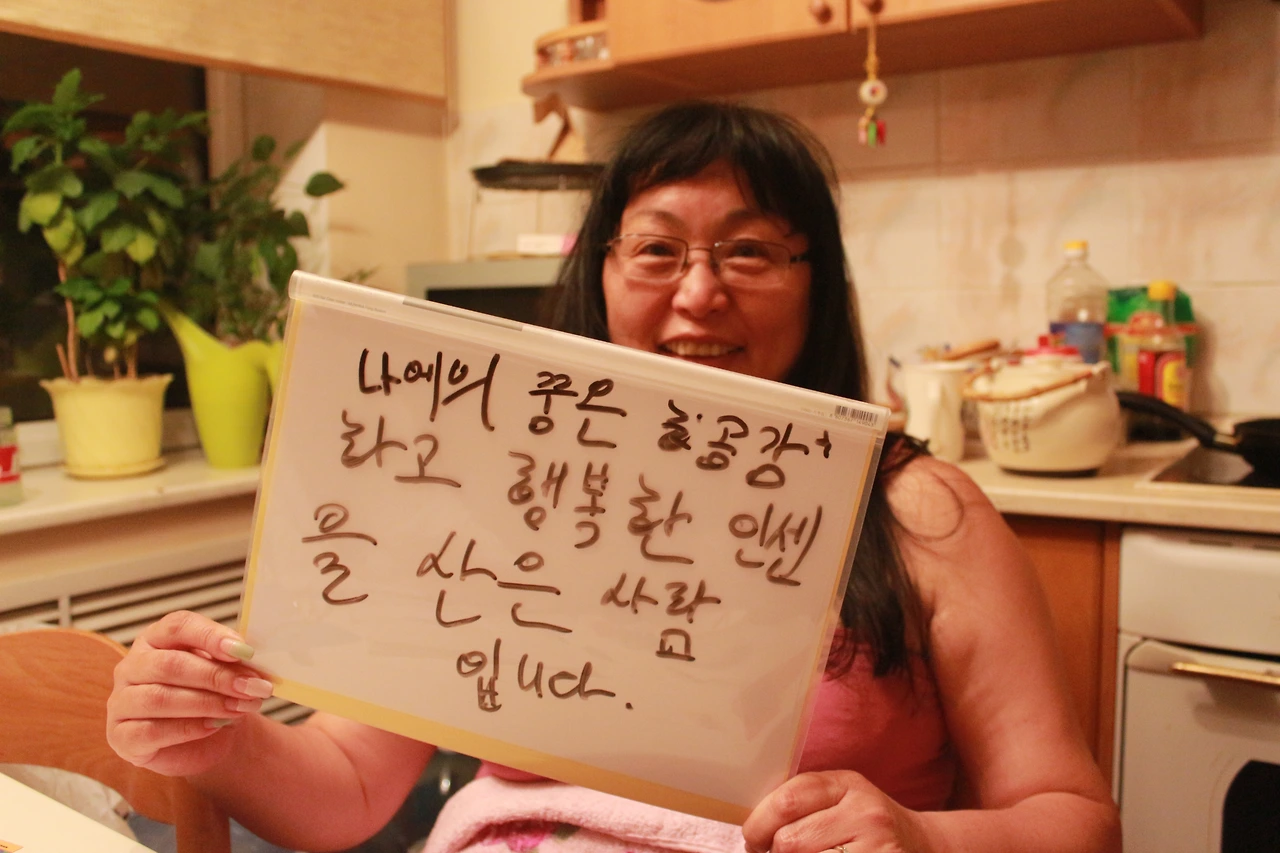 나에의 꿍은
하고 행복한 인센
을 산은 사람
입니다.